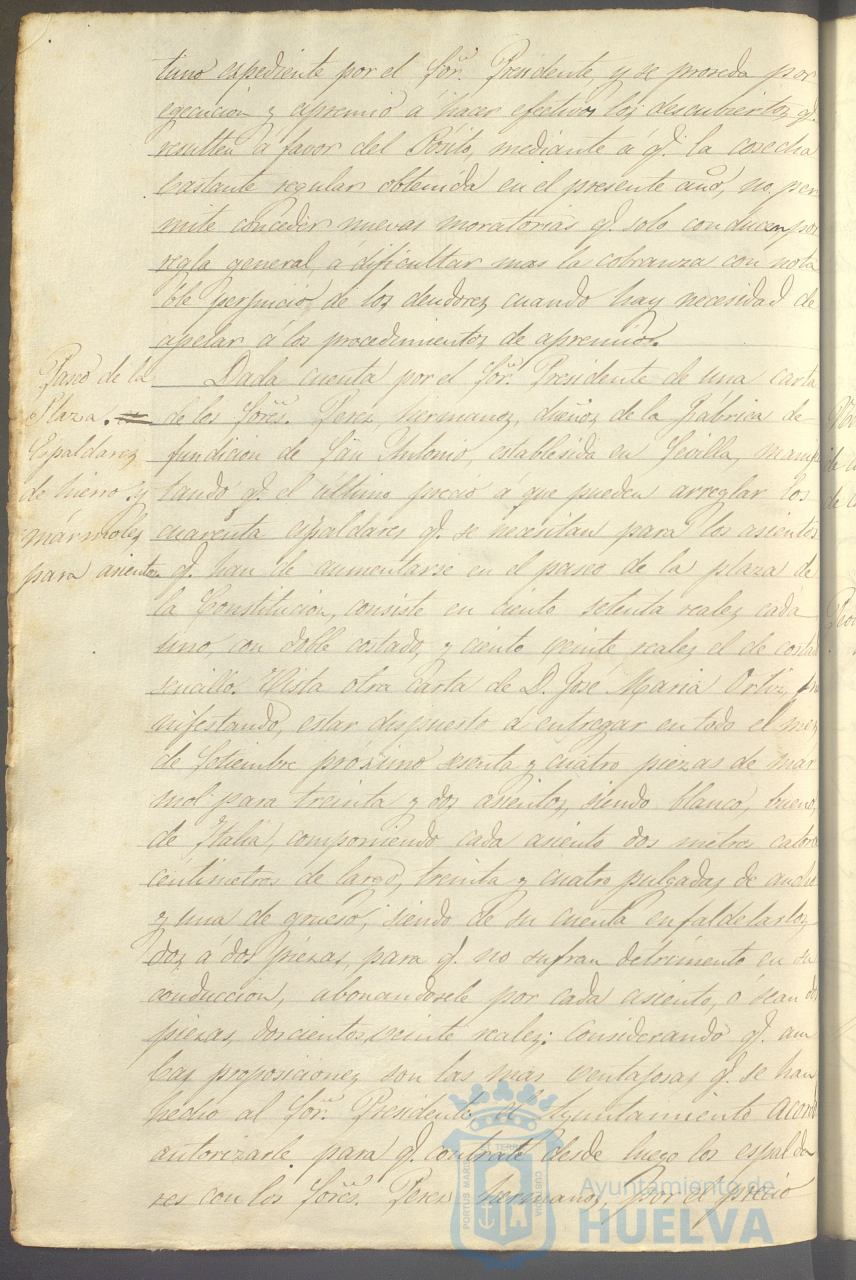 tuno espediente por el Sor. Presidente, y se proseda por
egecucion y apremio á hacer efectivos los descubiertos q.
resulten á favor del Pósito, mediante á q. la cosecha
bastante regular obtenida en el presente año, no per
mite conceder nuevas moratorias q. solo conducen por
regla general, á dificultar mas la cobranza con nota
ble perjuicio de los deudores cuando hay necesidad de
apelar á los procedimientos de apremio.
Paseo de la
Plaza.
Espaldares
de hierro y
mármoles
para asientos
Dada cuenta por el Sor. Presidente de una carta
de los Sores. Peres, hermanos, dueños de la Fábrica de
fundicion de San Antonio, establesida en Sevilla, manifes
tando q. el ultimo precio á que pueden arreglar los
cuarenta espaldares q. se necesitan para los asientos
q. han de aumentarse en el paseo de la plaza de
la Constitucion, consiste en ciento setenta reales cada
uno, con doble costado, y ciento veinte reales el de costado
sencillo. Vista otra carta de D. José Maria Ortiz, ma
nifestando, estar dispuesto á entregar en todo el mes
de Setiembre próximo sesenta y cuatro piezas de már
mol para treinta y dos asientos, siendo blanco, bueno,
de Italia, componiendo cada asiento dos metros catorce
centimetros de largo, treinta y cuatro pulgadas de ancho
y una de grueso; siendo de su cuenta enfaldelarlos
dos á dos piezas, para q. no sufran detrimento en su
conduccion, abonandosele por cada asiento, ó sean dos
piezas, doscientos veinte reales: Considerando q. am
bas proposiciones son las mas ventajosas q. se han
hecho al Sor. Presidente el Ayuntamiento acordó
autorizarle para q. contrate desde luego los espalda
res con los Sores. Peres hermanos, por el precio
Ayuntamiento de
HUELVA